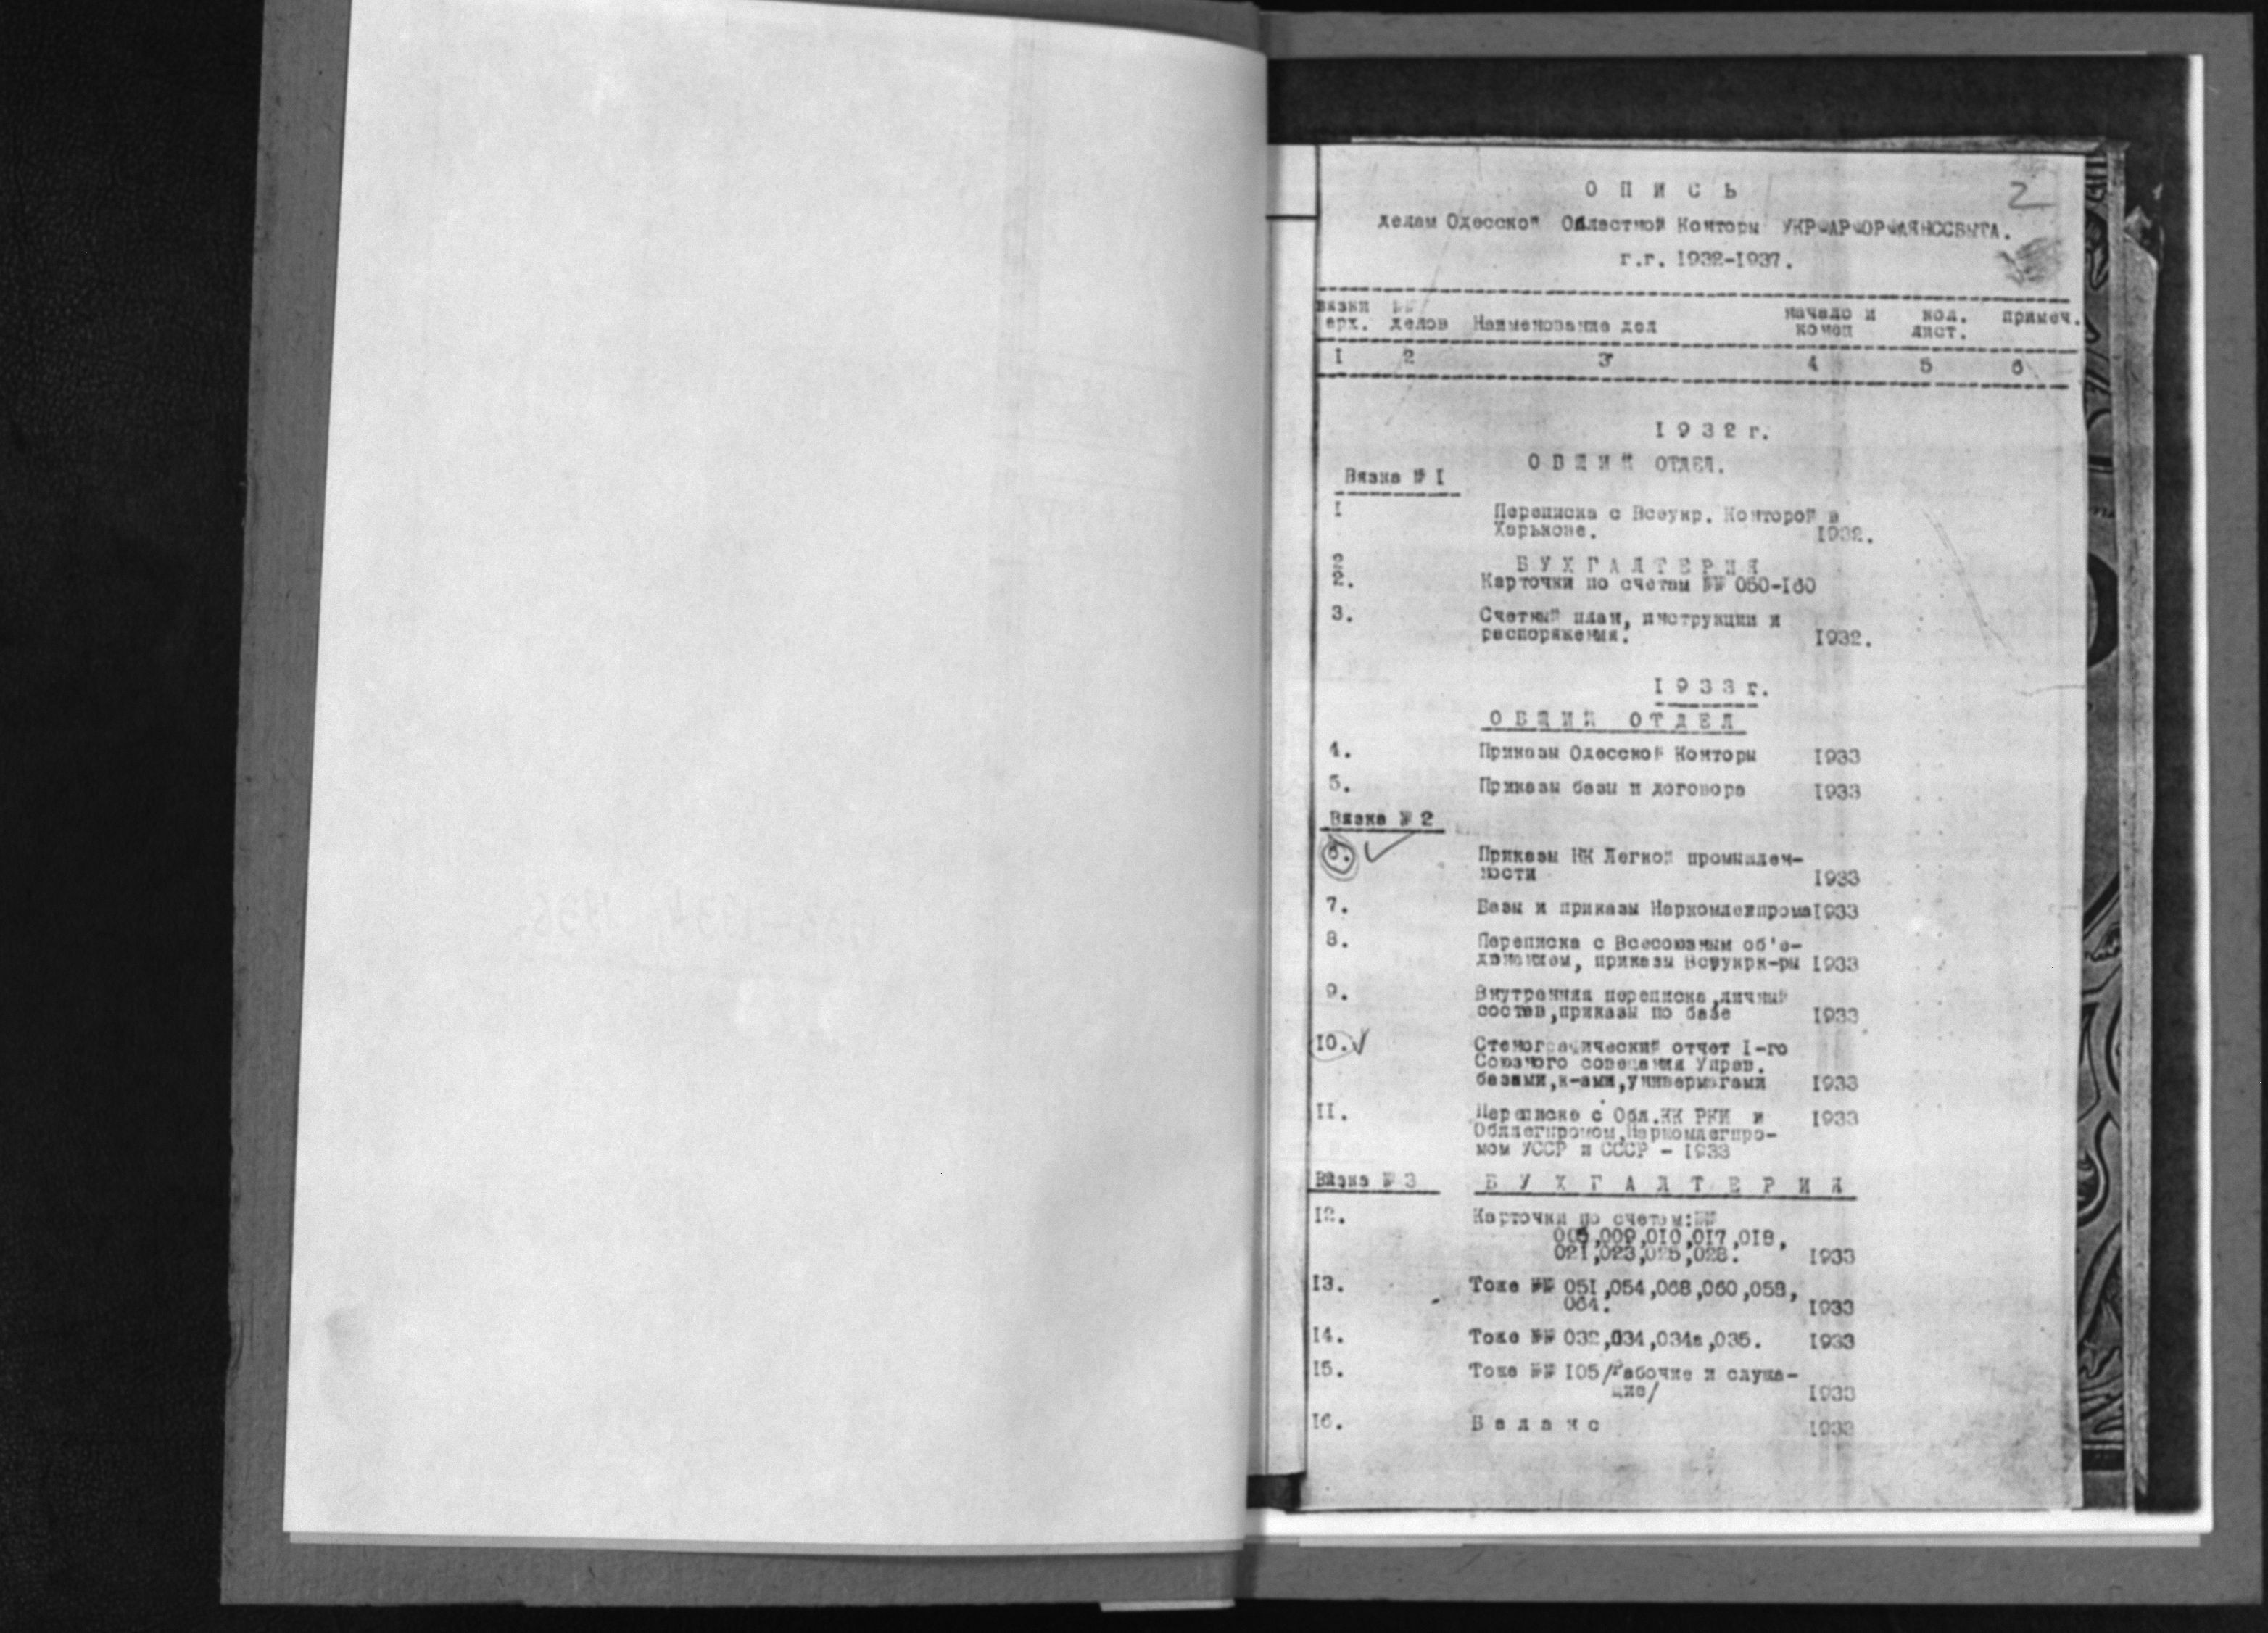 2
О П И С Ь
делам Одесской Областной Конторы УКРФАРФОРФАЯНССБЫТА.
г.г. 1932-1937.
вязки №№ начало и кол. примеч.
арх. делов Наименование дел конец лист.
I 2 3 4 5 6
I 9 3 2 г.
О Б Щ И Й ОТДЕЛ.
Вязка № I
I Переписка с Всеукр. Конторой в
Харькове. I932.
2 Б У Х Г А Л Т Е Р И Я
2. Карточки по счетам №№ 050-I60
3. Счетный план, инструкции и
распоряжения. I932.
I 9 3 3 г.
О Б Щ И Й О Т Д Е Л
4. Приказы Одесской Конторы I933
5. Приказы базы и договора I933
Вязка № 2
6. Приказы НК Легкой промышлен-
ности I933
7. Базы и приказы Наркомлегпрома I933
8. Переписка с Всесоюзным об'е-
динением, приказы Всеукрк-ры I933
9. Внутренняя переписка,личный
состав,приказы по базе I933
I0. Стенографический отчет I-го
Союзного совещания Управ.
базами,к-ами,универмагами I933
II. Переписка с Обл.КК РКИ и I933
Обллегпромом,Наркомлегпро-
мом УССР и СССР - I933
Вязка № 3 Б У Х Г А Л Т Е Р И Я
I2. Карточки по счетам:№№
,009,0I0,0I7,0I8,
02I,023,025,028. I933
I3. Тоже №№ 05I,054,068,060,058,
064. I933
I4. Тоже №№ 032,034,034а,035. I933
I5. Тоже №№ I05/Рабочие и служа-
щие/ I933
I6. Б а л а н с I933